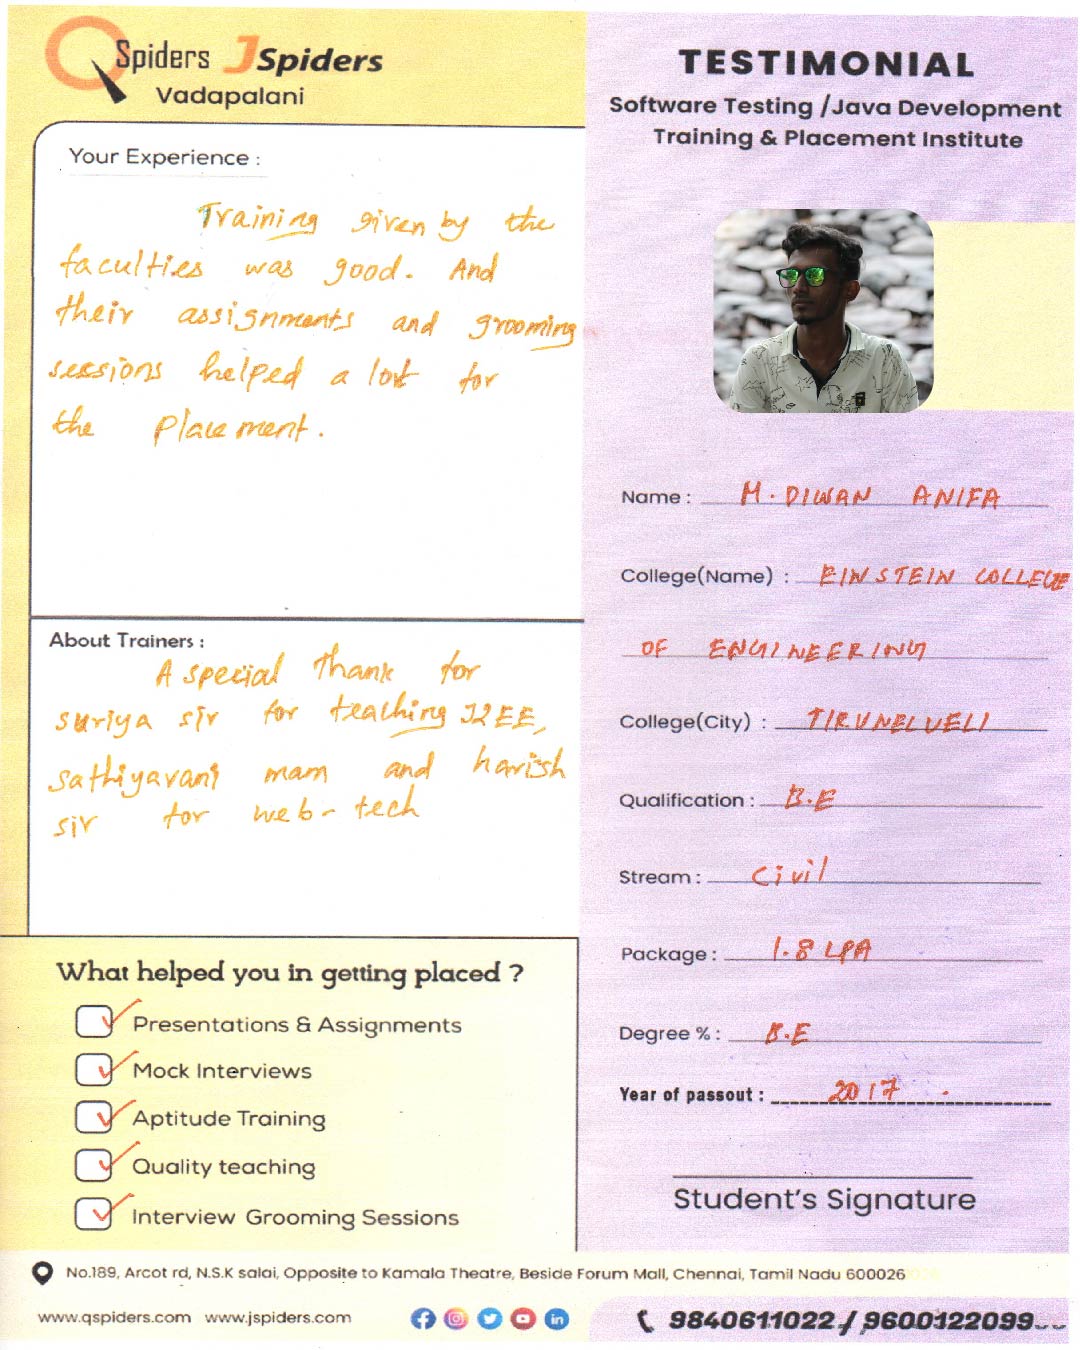 QSpiders JSpiders
Vadapalani
Your Experience :
Training given by the
faculties was good. And
their assignments and grooming
sessions helped a lot for
the placement.
About Trainers :
A special thank for
suriya sir for teaching J2EE,
sathiyavani mam and harish
sir for web-tech
What helped you in getting placed ?
Presentations & Assignments
Mock Interviews
Aptitude Training
Quality teaching
Interview Grooming Sessions
TESTIMONIAL
Software Testing /Java Development
Training & Placement Institute
Name : M. DIWAN ANIFA
College(Name) : EINSTEIN COLLEGE
OF ENGINEERING
College(City) : TIRUNELVELI
Qualification : B.E
Stream : Civil
Package : 1.8 LPA
Degree % : B.E
Year of passout : 2017
Student's Signature
No.189, Arcot rd, N.S.K salai, Opposite to Kamala Theatre, Beside Forum Mall, Chennai, Tamil Nadu 600026
www.qspiders.com www.jspiders.com
9840611022 / 9600122099